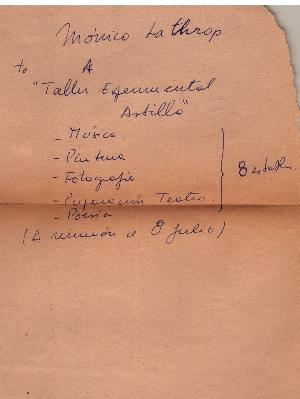 Mónico Lathrop
to A
"Taller Experimental
Astillo"
- Música
- Pintura
- Fotografía
- Preparación Teatro.
- Poesía
8
(A reunión el 8 Julio)